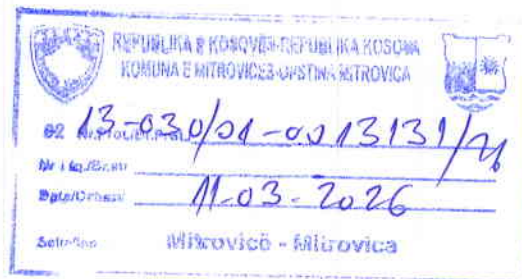 REPUBLIKA E KOSOVËS-REPUBLIKA KOSOVA
KOMUNA E MITROVICËS-OPŠTINA MITROVICA
02 13-030/01-0013131/26
Data/Datum 11-03-2026
Mitrovicë - Mitrovica